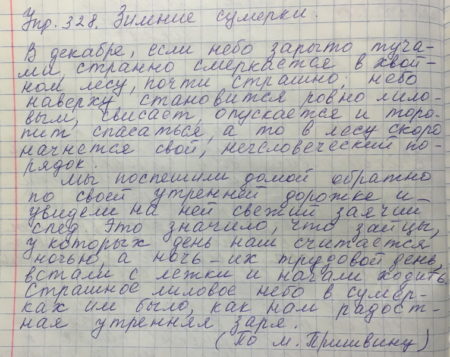 Упр. 328. Зимние сумерки.
В декабре, если небо зарыто туча-
ми, странно смеркается в хвой-
ном лесу, почти страшно; небо
наверху становится ровно лило-
вым, свисает, опускается и торо-
пит спасаться, а то в лесу скоро
начнется свой, нечеловеческий по-
рядок.
Мы поспешили домой обратно
по своей утренней дорожке и
увидели на ней свежий заячий
след. Это значило, что зайцы,
у которых день наш считается
ночью, а ночь – их трудовой день,
встали с лежки и начали ходить.
Страшное лиловое небо в сумер-
ках им было, как нам радост-
ная утренняя заря.
(По М. Пришвину)